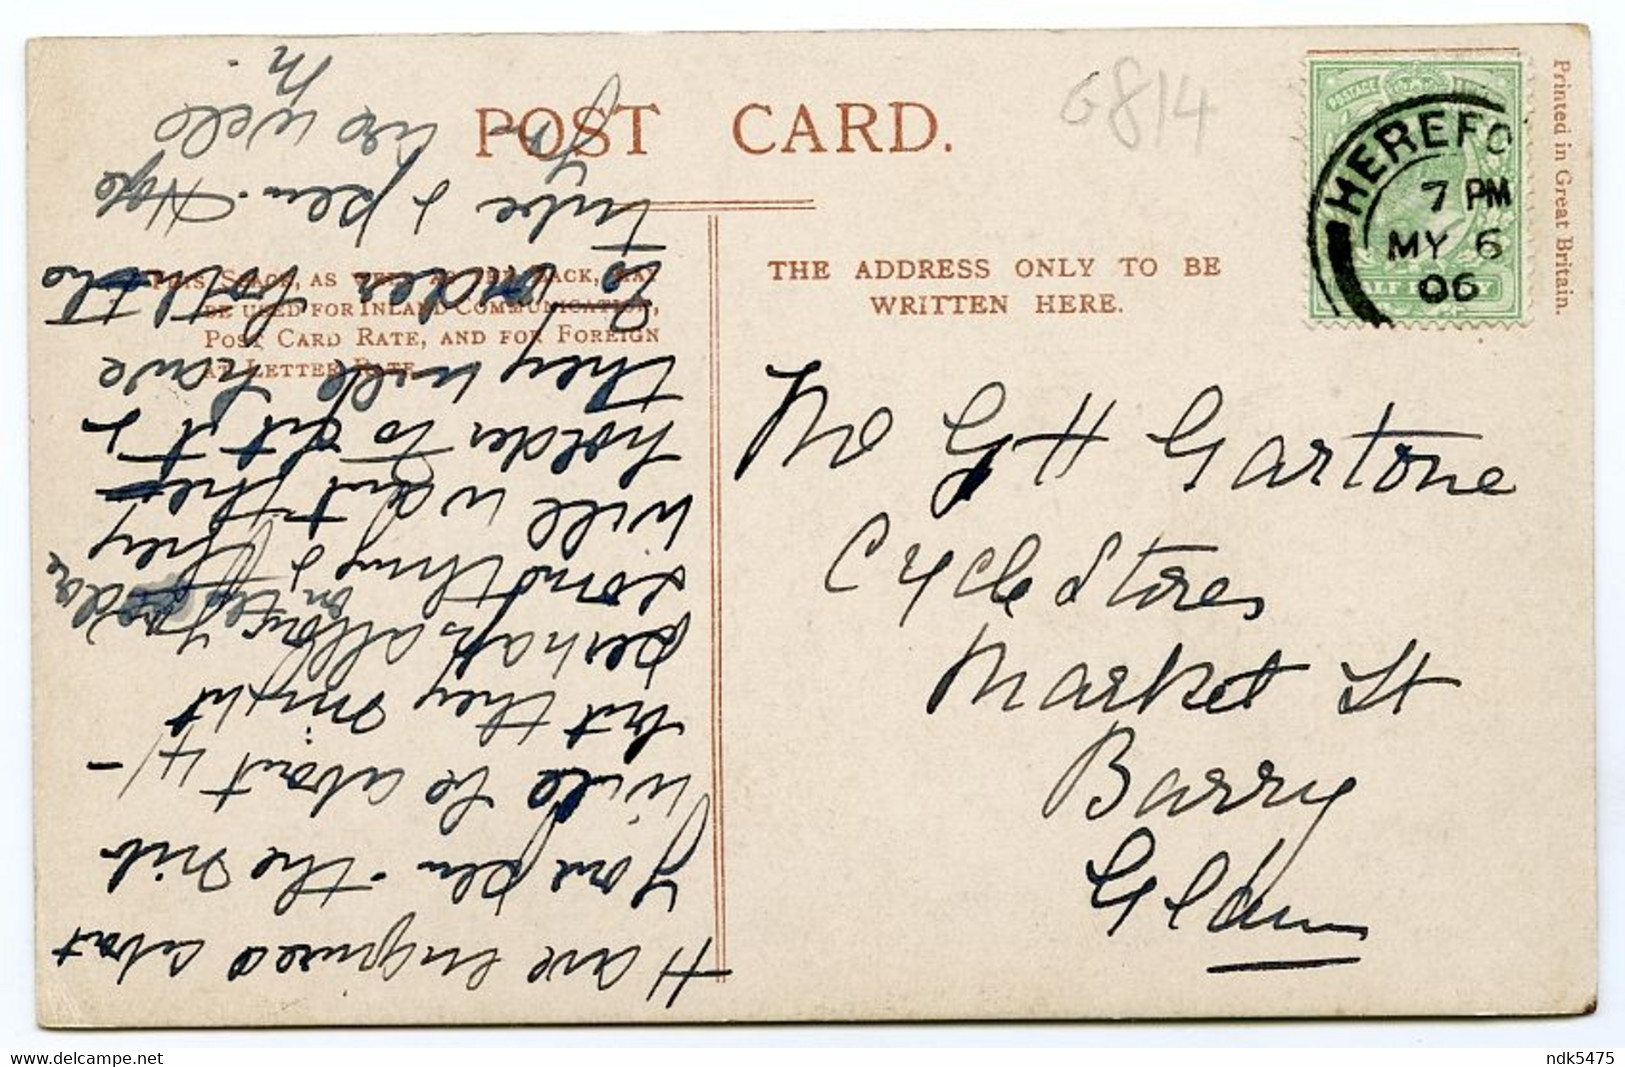 POST CARD.
G814
Printed in Great Britain.
HEREFO
7 PM
MY 6
06
POSTAGE
HALF PENNY
THIS SPACE, AS WELL AS THE BACK, MAY
BE USED FOR INLAND COMMUNICATION,
POST CARD RATE, AND FOR FOREIGN
AT LETTER RATE.
THE ADDRESS ONLY TO BE
WRITTEN HERE.
G H Gartone
Cycle Stores
Market St
Barry
Glam
Have enquired about
your pen - the nib
will be about 4/-
but they might
perhaps allow
something on the
will want the
holder to fit it &
they will have
to order both the
tube & pen. Hope
yr are well
M.
ndk5475